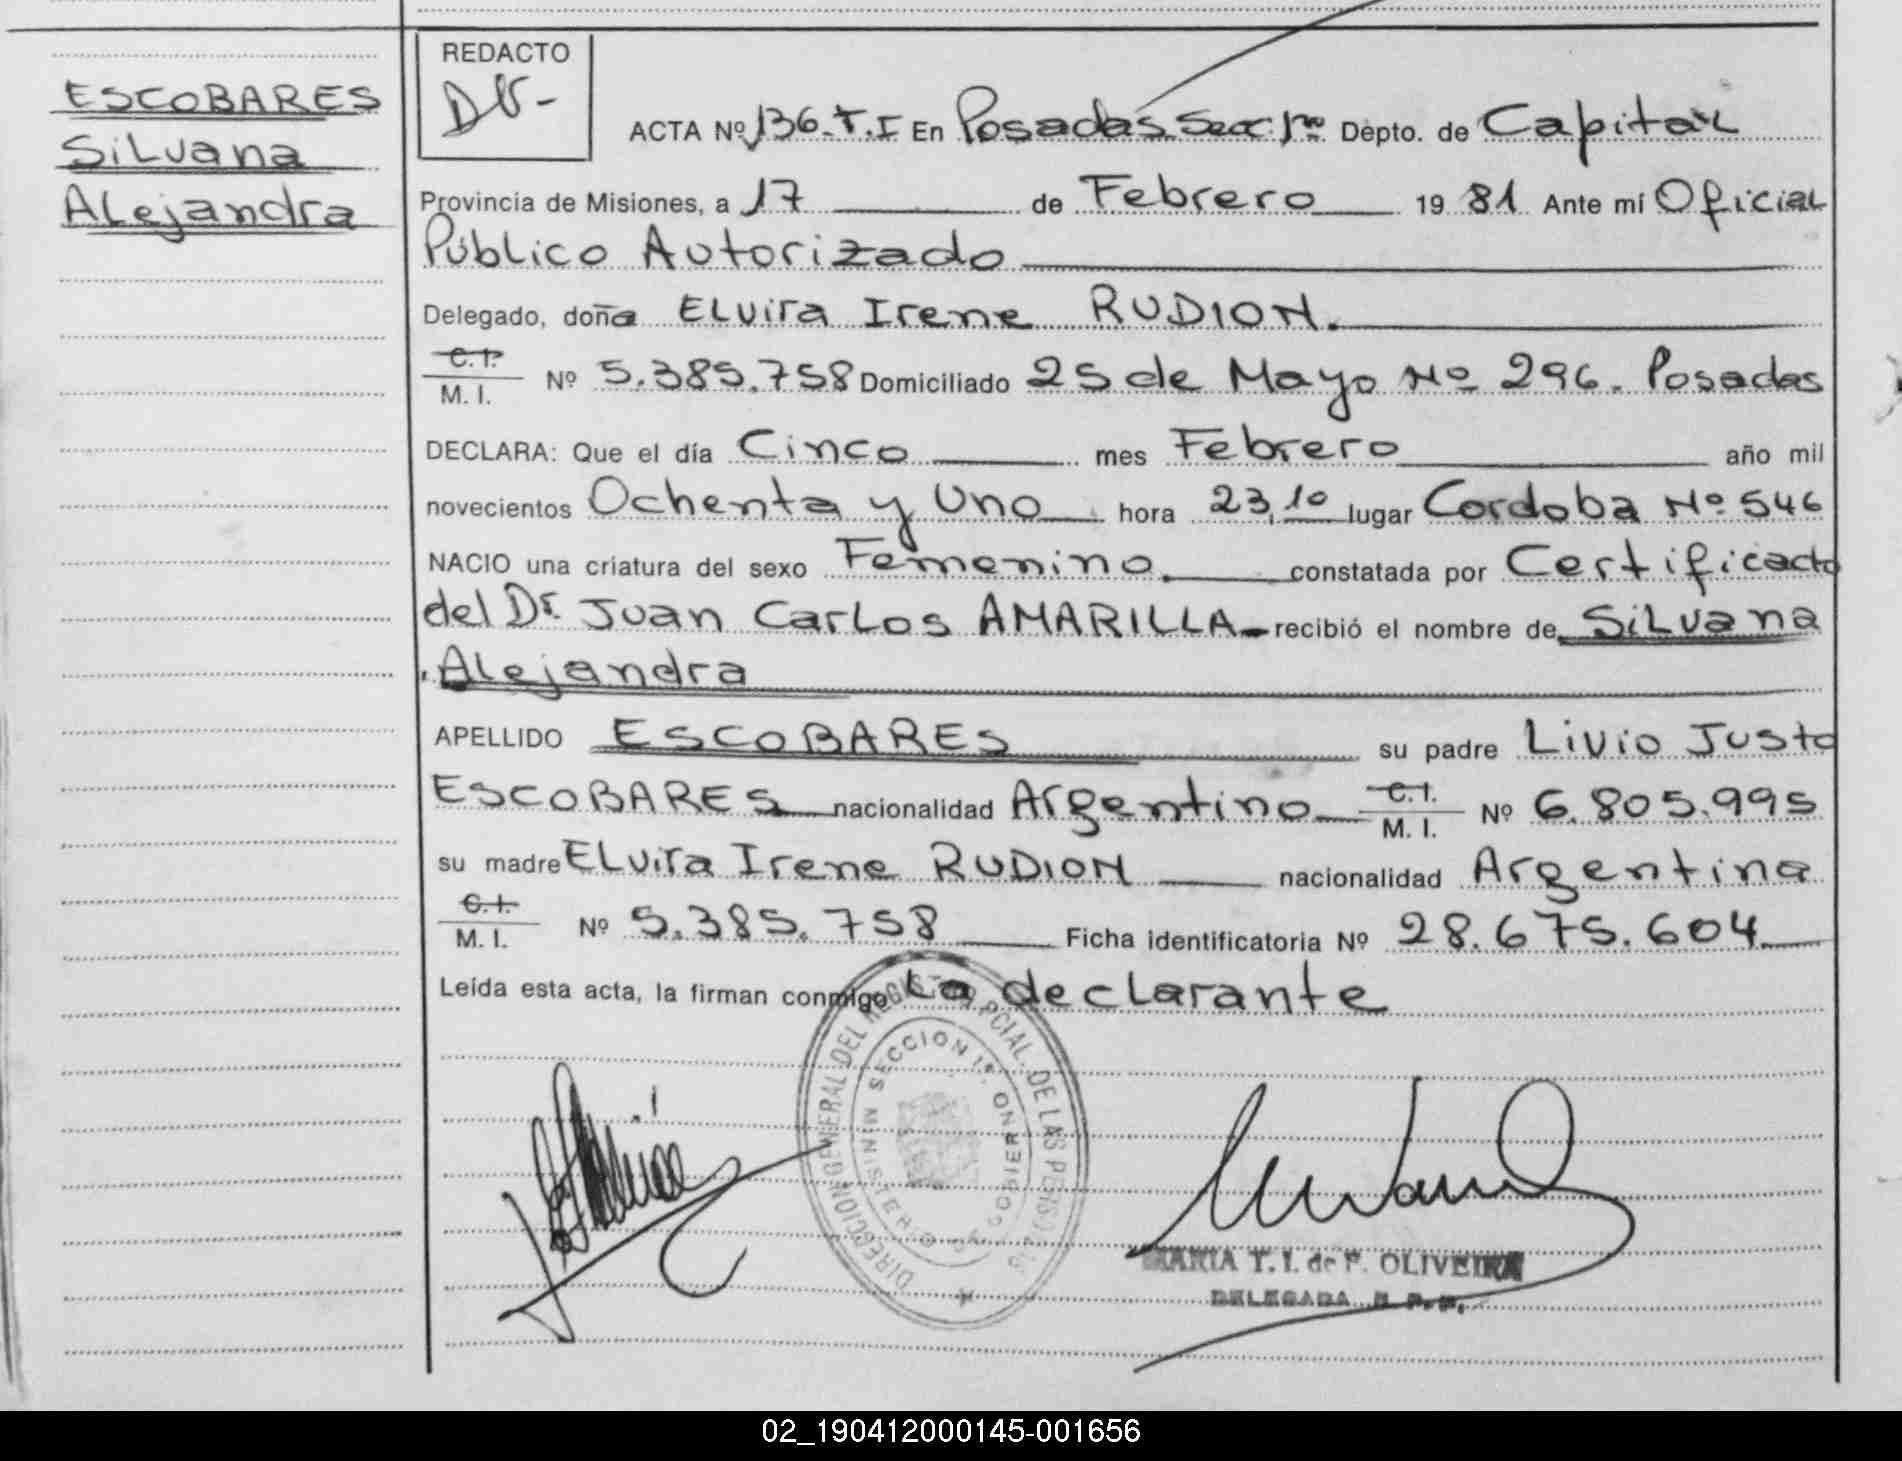 ESCOBARES
Silvana
Alejandra
REDACTO
ACTA Nº 136.T.I En Posadas Secc. 1ra Depto. de Capital
Provincia de Misiones, a 17 de Febrero 19 81 Ante mí Oficial
Público Autorizado
Delegado, doña Elvira Irene RUDION.
C. I.
M. I. Nº 5.385.758 Domiciliado 25 de Mayo Nº 296. Posadas
DECLARA: Que el día Cinco mes Febrero año mil
novecientos Ochenta y Uno hora 23,10 lugar Cordoba Nº 546
NACIO una criatura del sexo Femenino. constatada por Certificado
del Dr. Juan Carlos AMARILLA recibió el nombre de Silvana
Alejandra
APELLIDO ESCOBARES su padre Livio Justo
ESCOBARES nacionalidad Argentino C. I.
M. I. Nº 6.805.995
su madre Elvira Irene RUDION nacionalidad Argentina
C. I.
M. I. Nº 5.385.758 Ficha identificatoria Nº 28.675.604
Leída esta acta, la firman conmigo La declarante
DIRECCION GENERAL DEL REGISTRO PCIAL. DE LAS PERSONAS
SECCION 1ª
MINISTERIO DE GOBIERNO
MARIA T. I. de P. OLIVEIRA
DELEGADA R. P. P.
02_190412000145-001656